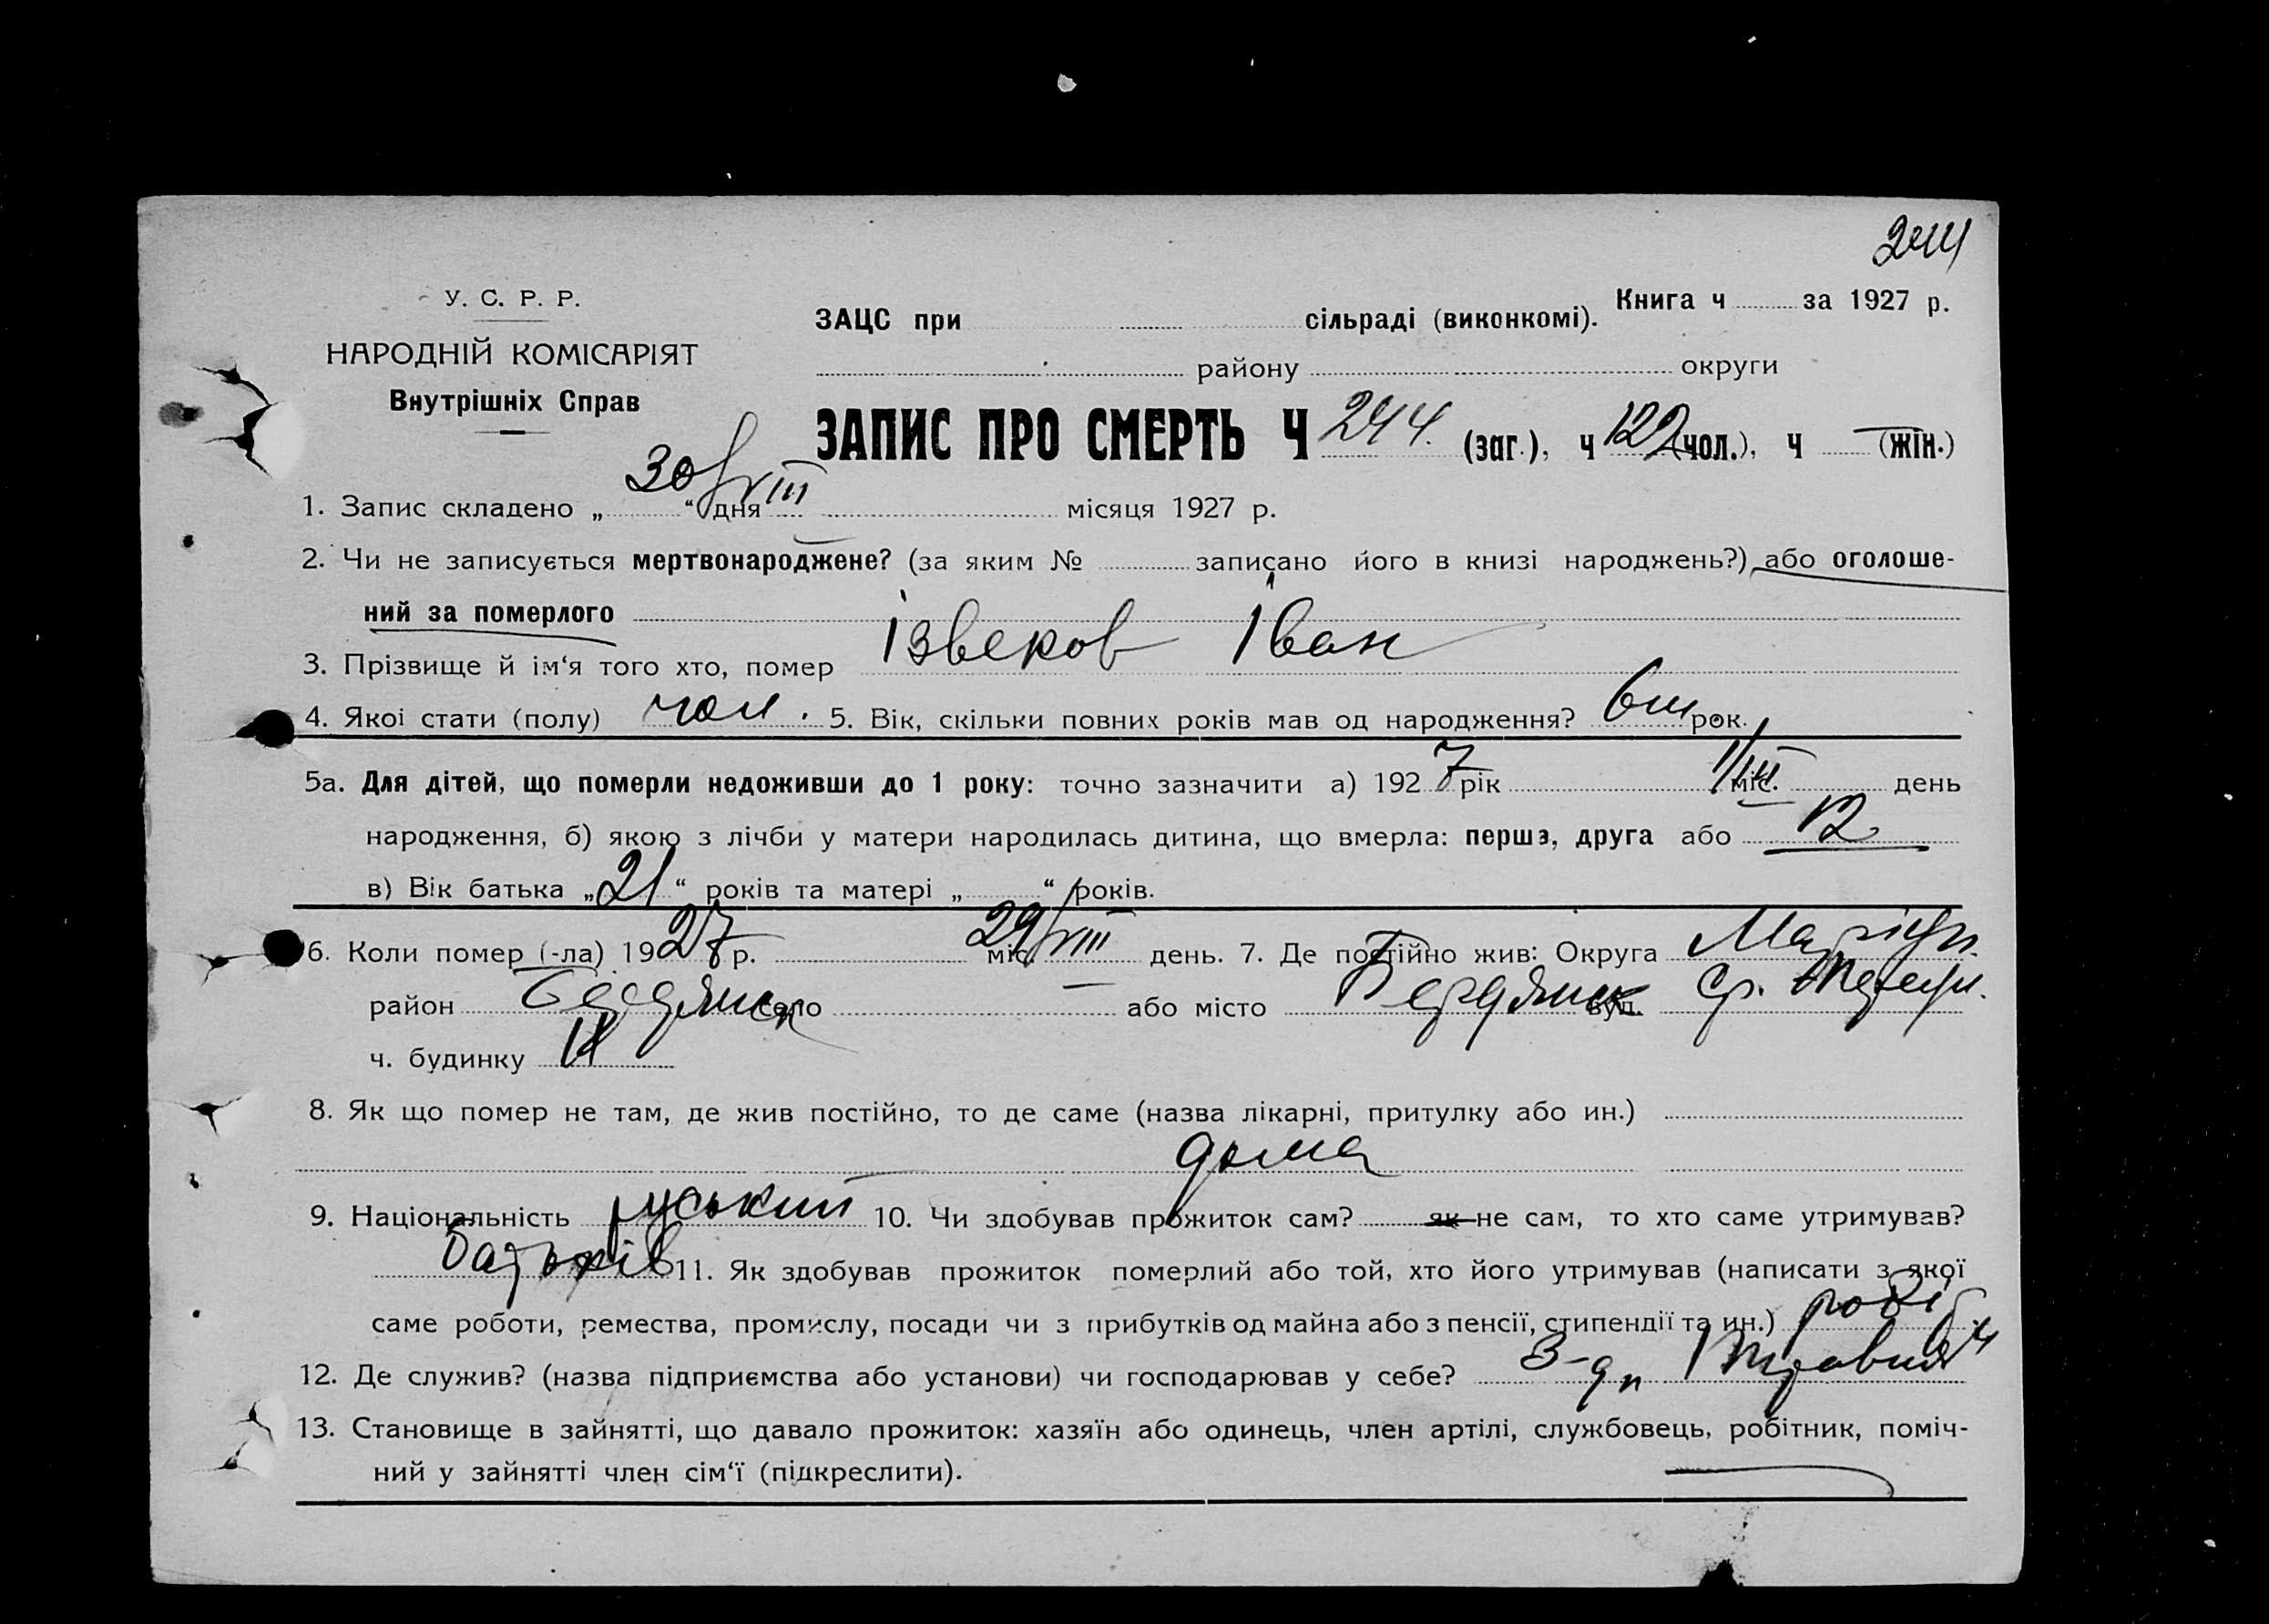 244
У. С. Р. Р.
НАРОДНІЙ КОМІСАРІЯТ
Внутрішніх Справ
ЗАЦС при сільраді (виконкомі). Книга ч за 1927 р.
району округи
ЗАПИС ПРО СМЕРТЬ Ч 244. (заг.), ч 122 (чол.), ч — (жін.)
1. Запис складено „ 30/VIII “ дня місяця 1927 р.
2. Чи не записується мертвонароджене? (за яким № записано його в книзі народжень?) або оголоше-
ний за померлого
3. Прізвище й ім‘я того хто, помер Ізвеков Іван
4. Якої стати (полу) чол. 5. Вік, скільки повних років мав од народження? 6 м рок.
5а. Для дітей, що померли недоживши до 1 року: точно зазначити а) 192 7 рік 1/III міс. день
народження, б) якою з лічби у матери народилась дитина, що вмерла: перша, друга або 12
в) Вік батька „ 21 “ років та матері „ “ років.
6. Коли помер (-ла) 19 27 р. 29/VIII міс. день. 7. Де постійно жив: Округа Маріуп.
район Бердянськ село або місто Бердянськ вул.
ч. будинку
8. Як що помер не там, де жив постійно, то де саме (назва лікарні, притулку або ин.)
дома
9. Національність руський 10. Чи здобував прожиток сам? як не сам, то хто саме утримував?
батьків 11. Як здобував прожиток померлий або той, хто його утримував (написати з якої
саме роботи, ремества, промислу, посади чи з прибутків од майна або з пенсії, стипендії та ин.) робіт
12. Де служив? (назва підприємства або установи) чи господарював у себе? З-д 1 травня
13. Становище в зайнятті, що давало прожиток: хазяїн або одинець, член артілі, службовець, робітник, поміч-
ний у зайнятті член сім‘ї (підкреслити).